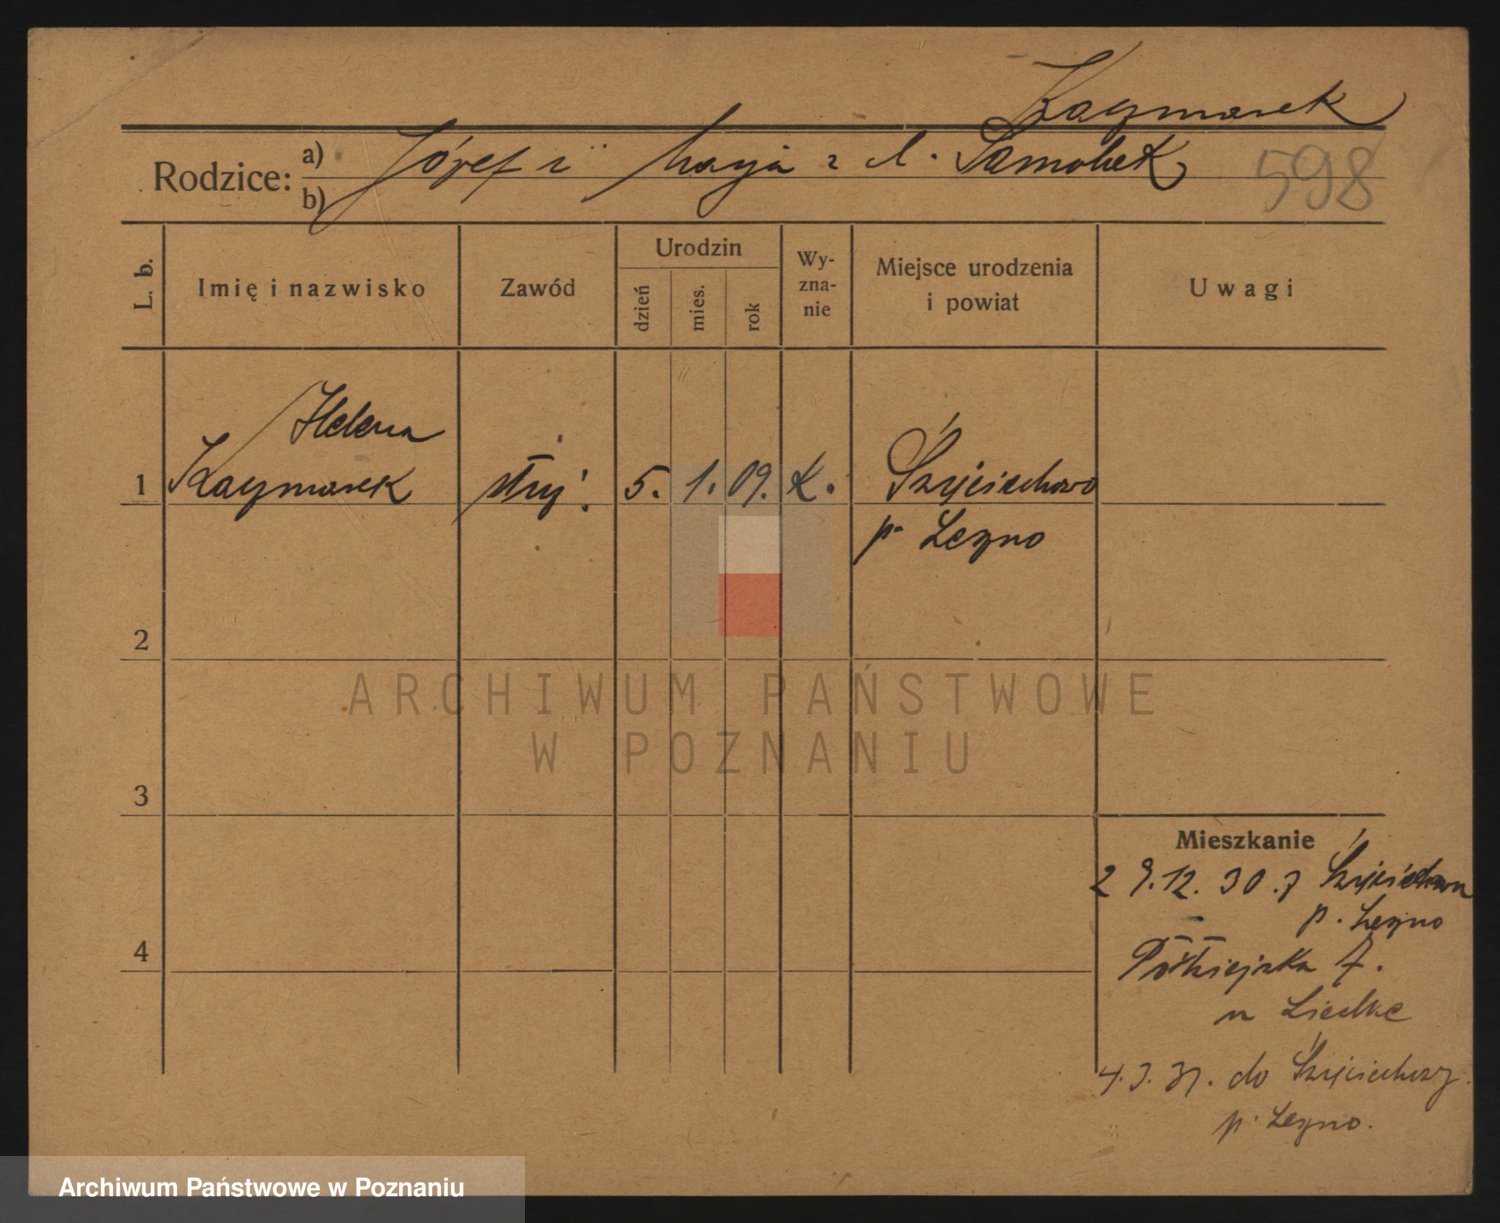 Kaczmarek
Rodzice: a) Józef i Marja z d. Samolek
b)
598
L. b.
Imię i nazwisko
Zawód
Urodzin
dzień
mies.
rok
Wy-
zna-
nie
Miejsce urodzenia
i powiat
Uwagi
Helena
1 Kaczmarek 5. 1. 09. K.
p. Leszno
2
3
4
Mieszkanie
29.12.30. z
p. Leszno
4.
u
4.3.31. do
p. Leszno.
ARCHIWUM PAŃSTWOWE
W POZNANIU
Archiwum Państwowe w Poznaniu